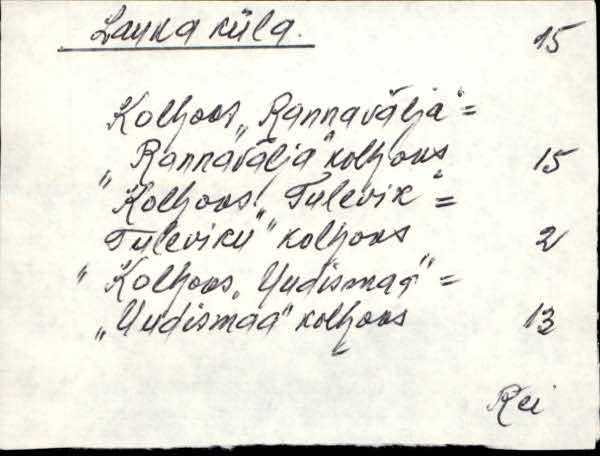 Lauka küla. 15
Kolhoos „Rannavälja" =
„Rannavälja" kolhoos 15
Kolhoos „Tulevik" =
Tuleviku" kolhoos 2
" Kolhoos „Uudismaa" =
„Uudismaa" kolhoos 13
Rei